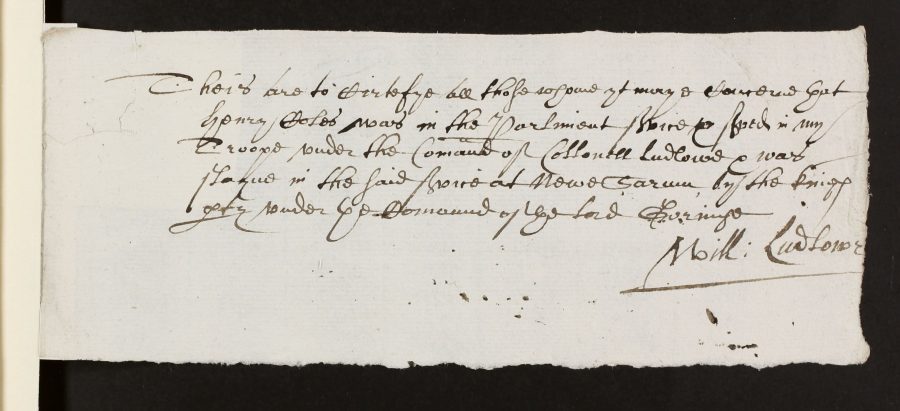 Theis are to Certefye all those whome yt maye Concerne that
Henry Coles was in the Parliment service & served in my
Troope under the Comaund of Collonell Ludlowe & was
slayne in the said service at Newe Sarum by the kings
pty under the Comaund of the Lord Goringe
Will: Ludlowe